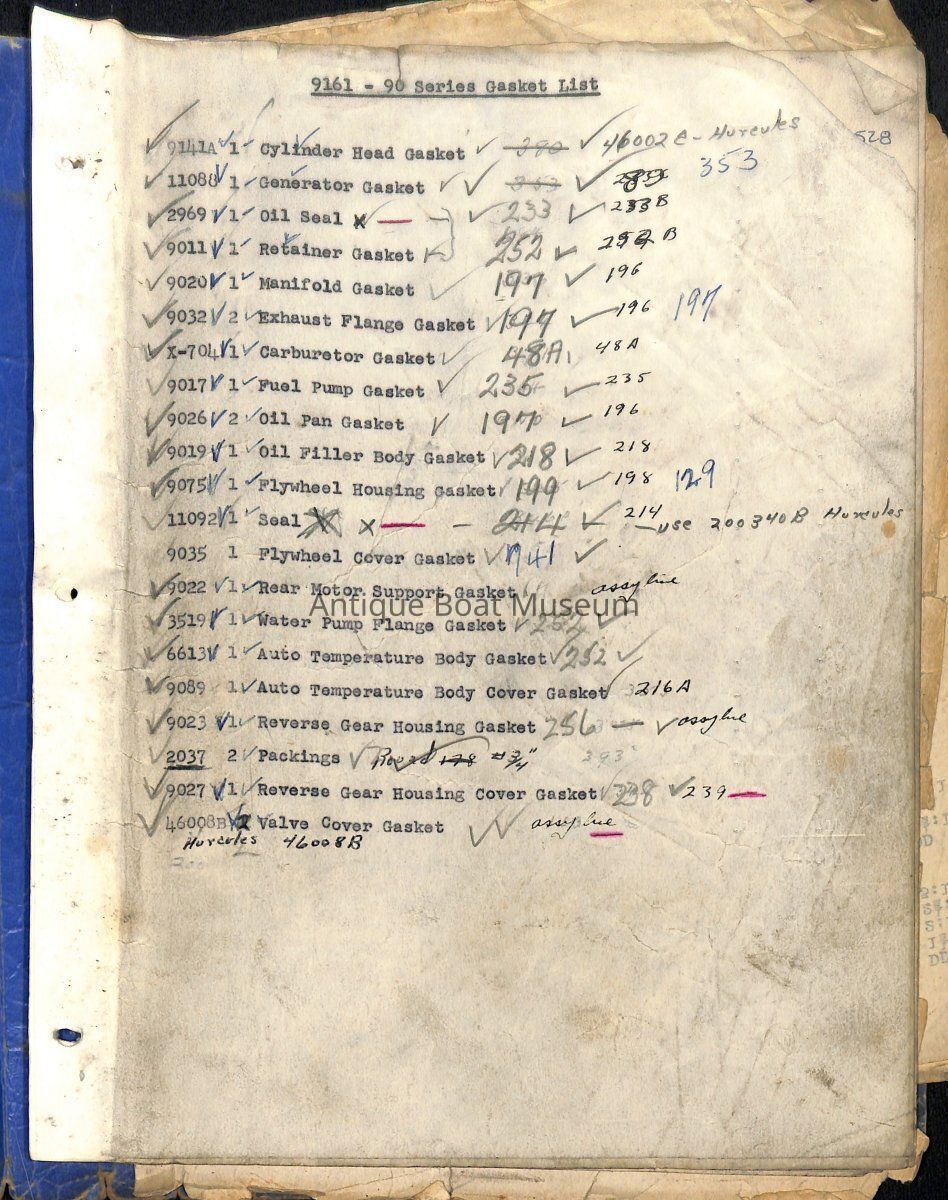 9161 - 90 Series Gasket List
9141A 1 Cylinder Head Gasket 380 46002 C - Hurcules 528
11088 1 Generator Gasket 353 353
2969 1 Oil Seal x — 233 233B
9011 1 Retainer Gasket 252 252 B
9020 1 Manifold Gasket 197 196
9032 2 Exhaust Flange Gasket 197 196 197
X-704 1 Carburetor Gasket 48A 48A
9017 1 Fuel Pump Gasket 235 235
9026 2 Oil Pan Gasket 197 196
9019 1 Oil Filler Body Gasket 218 218
9075 1 Flywheel Housing Gasket 199 198 129
11092 1 Seal x — 214 214 - use 200340B Hurcules
9035 1 Flywheel Cover Gasket 1741
9022 1 Rear Motor Support Gasket
Antique Boat Museum
3519 1 Water Pump Flange Gasket 252
6613 1 Auto Temperature Body Gasket 252
9089 1 Auto Temperature Body Cover Gasket 216A
9023 1 Reverse Gear Housing Gasket 256 —
2037 2 Packings 393
9027 1 Reverse Gear Housing Cover Gasket 238 239 —
46008B 2 Valve Cover Gasket
Hurcules 46008B